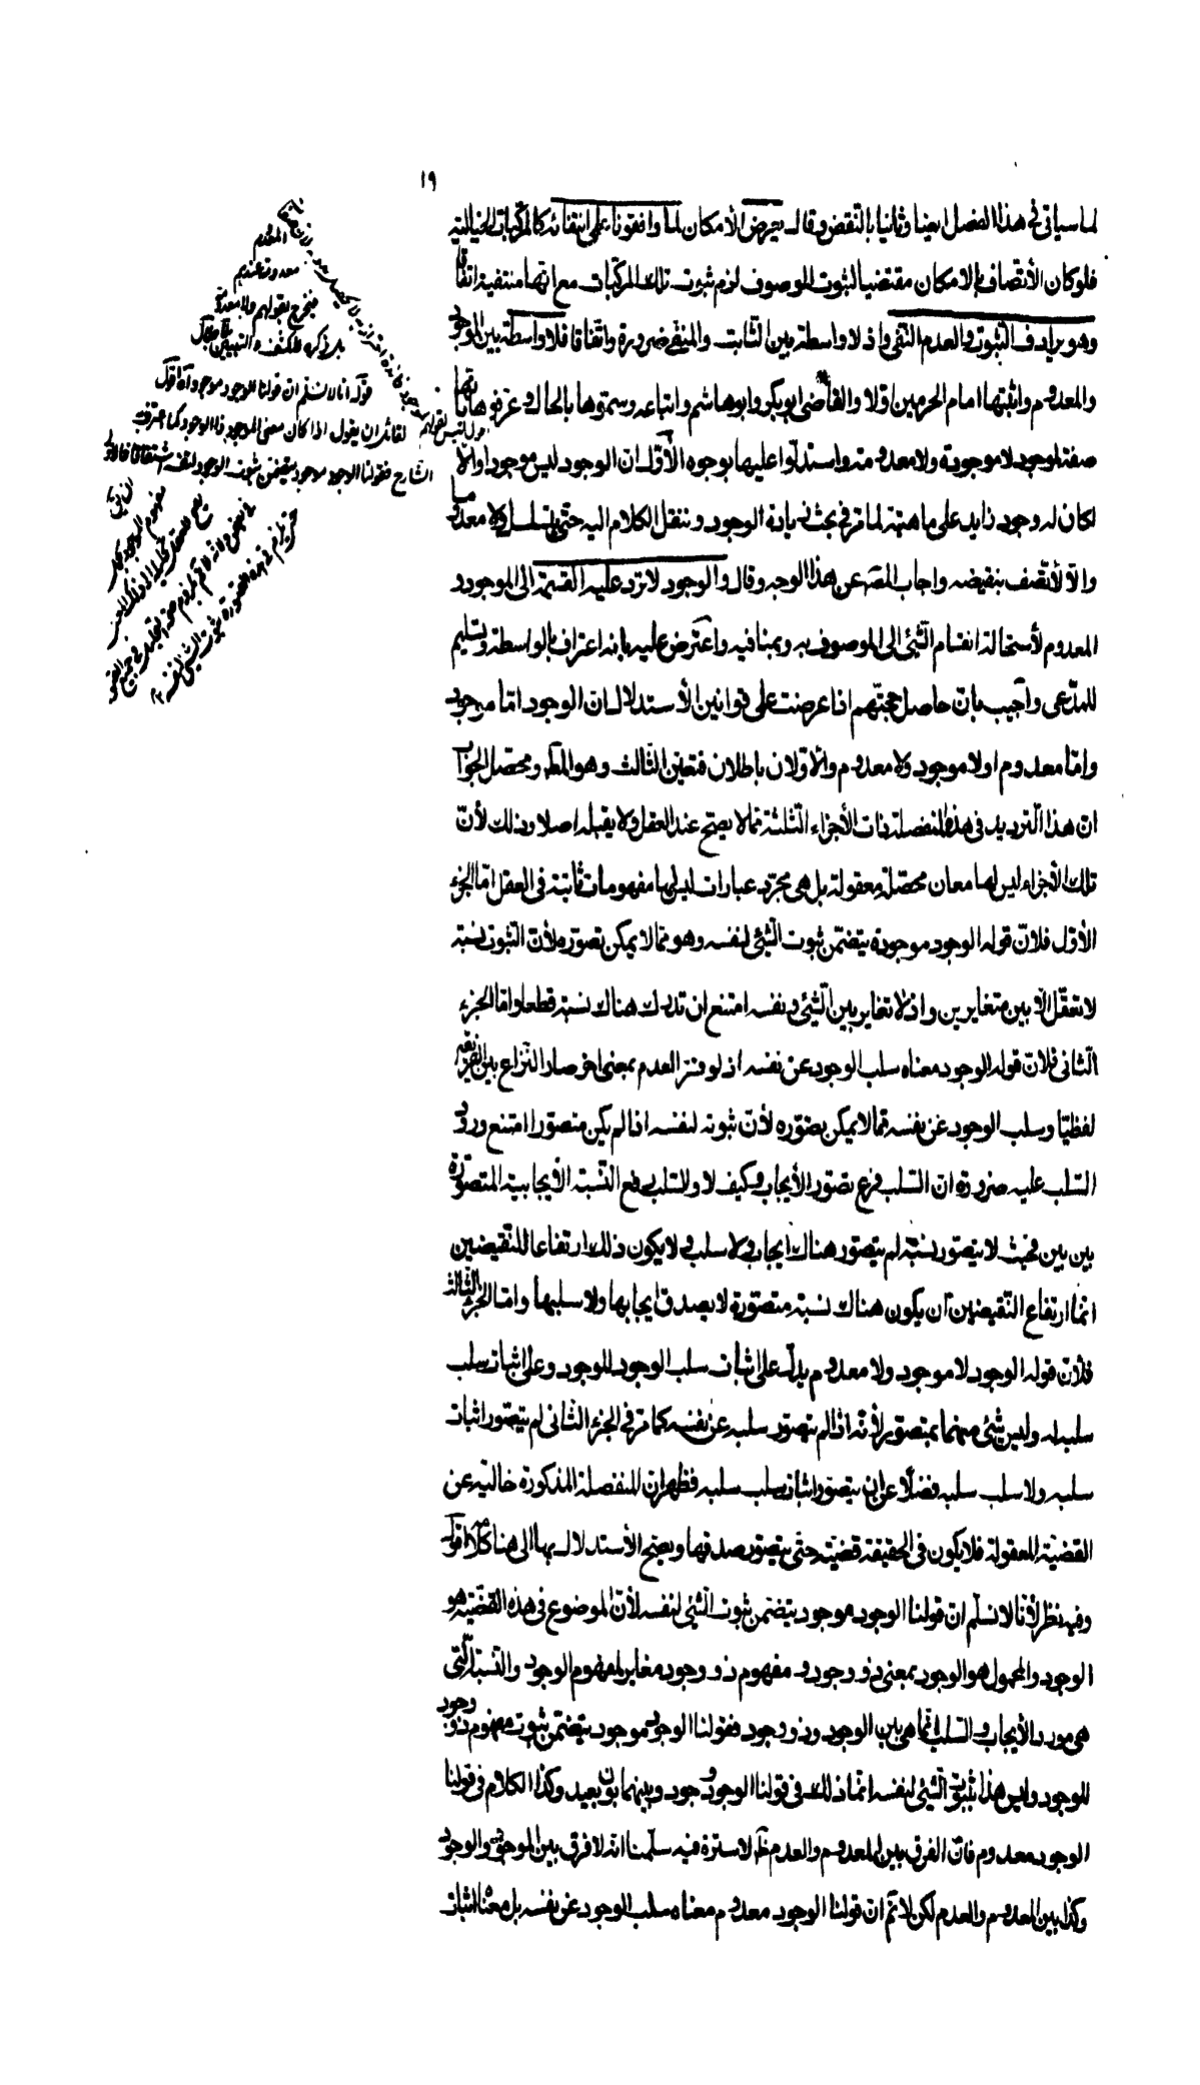 ١٩
لما سياتى فى هذا الفصل ايضا وثانيا بالنقض وقال يعرض الأمكان لما وافقونا على انتفائه كالمركبات الخيالية
فلو كان الأتصاف بالامكان مقتضيا لثبوت الموصوف لزم ثبوت تلك المركبات مع انها منتفية اتفاقا
وهو يرادف الثبوت والعدم النفى واذ لا واسطة بين الثابت والمنفى ضرورة واتفاقا فلا واسطة بين الموجود
والمعدوم واثبتها امام الحرمين اولا والقاضى ابو بكر وابو هاشم واتباعه وسمّوها بالحال وعرفوها بانها
صفة لموجود لا موجودة ولا معدومة واستدلّوا عليها بوجوه الأوّل ان الوجود ليس موجودا والّا
لكان له وجود زايد على ماهيته لما مر فى بحث زيادة الوجود وننقل الكلام اليه حتى يتسلسل ولا معدوما
والّا لأتّصف بنقيضه واجاب المصّه عن هذا الوجه وقال والوجود لا ترد عليه القسمة الى الموجود و
المعدوم لأستحالة انقسام الشّئ الى الموصوف به وبمنافيه واعترض عليه بانه اعتراف بالواسطة وتسليم
للمدّعى واُجيب بانّ حاصل حجتهم اذا عرضت على قوانين الأستدلال ان الوجود امّا موجود
وامّا معدوم او لا موجود ولا معدوم والاوّلان باطلان فتعين الثّالث وهو المط ومحصّل الجواب
ان هذا الترديد فى هذه المنفصلة ذات الأجزاء الثّلثة ممّا لا يصحّ عند العقل ولا يقبله اصلا وذلك لأنّ
تلك الأجزاء ليس لها معان محصّلة معقولة بل هى مجرّد عبارات ليس لها مفهومات ثابتة فى العقل امّا الجزء
الأوّل فلانّ قوله الوجود موجودة يتضمّن ثبوت الشّئ لنفسه وهو ممّا لا يمكن تصوّره لأنّ الثبوت نسبة
لا تعقّل الّا بين متغايرين واذ لا تغاير بين الشّئ ونفسه امتنع ان تدرك هناك نسبة قطعا وامّا الجزء
الثّانى فلانّ قوله الوجود معناه سلب الوجود عن نفسه اذ لو فسّر العدم بمعنى اخر صار النّزاع بين الفريقين
لفظيّا وسلب الوجود عن نفسه ممّا لا يمكن تصوّره لأنّ ثبوته لنفسه اذا لم يكن متصوّرا امتنع ورود
السّلب عليه ضرورة ان السّلب فرع تصوّر الأيجاب وكيف لا والسّلب رفع النّسبة الأيجابية المتصوّرة
بين بين فحيث لا يتصوّر نسبة لم يتصوّر هناك ايجاب ولا سلب ولا يكون ذلك ارتفاعا للنقيضين
انّما ارتفاع النّقيضين ان يكون هناك نسبة متصوّرة لا يصدق ايجابها ولا سلبها وامّا الجزء الثّالث
فلأنّ قوله الوجود لا موجود ولا معدوم يدلّ على اثبات سلب الوجود للوجود وعلى اثبات سلب
سلبه له وليس شئ منهما بمتصوّر لأنّه اذا لم يتصوّر سلبه عن نفسه كما مرّ فى الجزء الثّانى لم يتصوّر اثبات
سلبه ولا سلب سلبه فضلا عن ان يتصوّر اثبات سلب سلبه فظهر ان المنفصلة المذكورة خالية عن
القضيّة المعقولة فلا يكون فى الحقيقة قضيّة حتّى يتصوّر صدقها ويصحّ الأستدلال بها الى هنا كلامه اقول
وفيه نظر لأنّا لا نسلّم ان قولنا الوجود موجود يتضمّن ثبوت الشّئ لنفسه لأنّ الموضوع فى هذه القضيّة هو
الوجود والمحمول هو الوجود بمعنى ذو وجود ومفهوم ذو وجود مغاير لمفهوم الوجود والنّسبة الّتى
هى مورد الأيجاب والسّلب انّما هى بين الوجود وذو وجود فقولنا الوجود موجود يتضمّن ثبوت مفهوم ذو وجود
للوجود وليس هذا ثبوت الشّئ لنفسه انّما ذلك فى قولنا الوجود وجود وبينهما بون بعيد وكذا الكلام فى قولنا
الوجود معدوم فانّ الفرق بين المعدوم والعدم ظ لا سترة فيه سلّمنا انّه لا فرق بين الموجود والوجود
وكذا بين المعدوم والعدم لكن لا نم ان قولنا الوجود معدوم معناه سلب الوجود عن نفسه بل معناه اثبات
المعدوم
معدومة عندهم
فيخرج بقولهم ولا معدومة
بل ذكره للكشف والتبيين
قوله انا لا نسلم ان قولنا الوجود موجود آه اقول
لقائل ان يقول اذا كان معنى الموجود ذا الوجود كما اعترف
الشارح فقولنا الوجود موجود يتضمن ثبوت الوجود لنفسه اشتقاقا